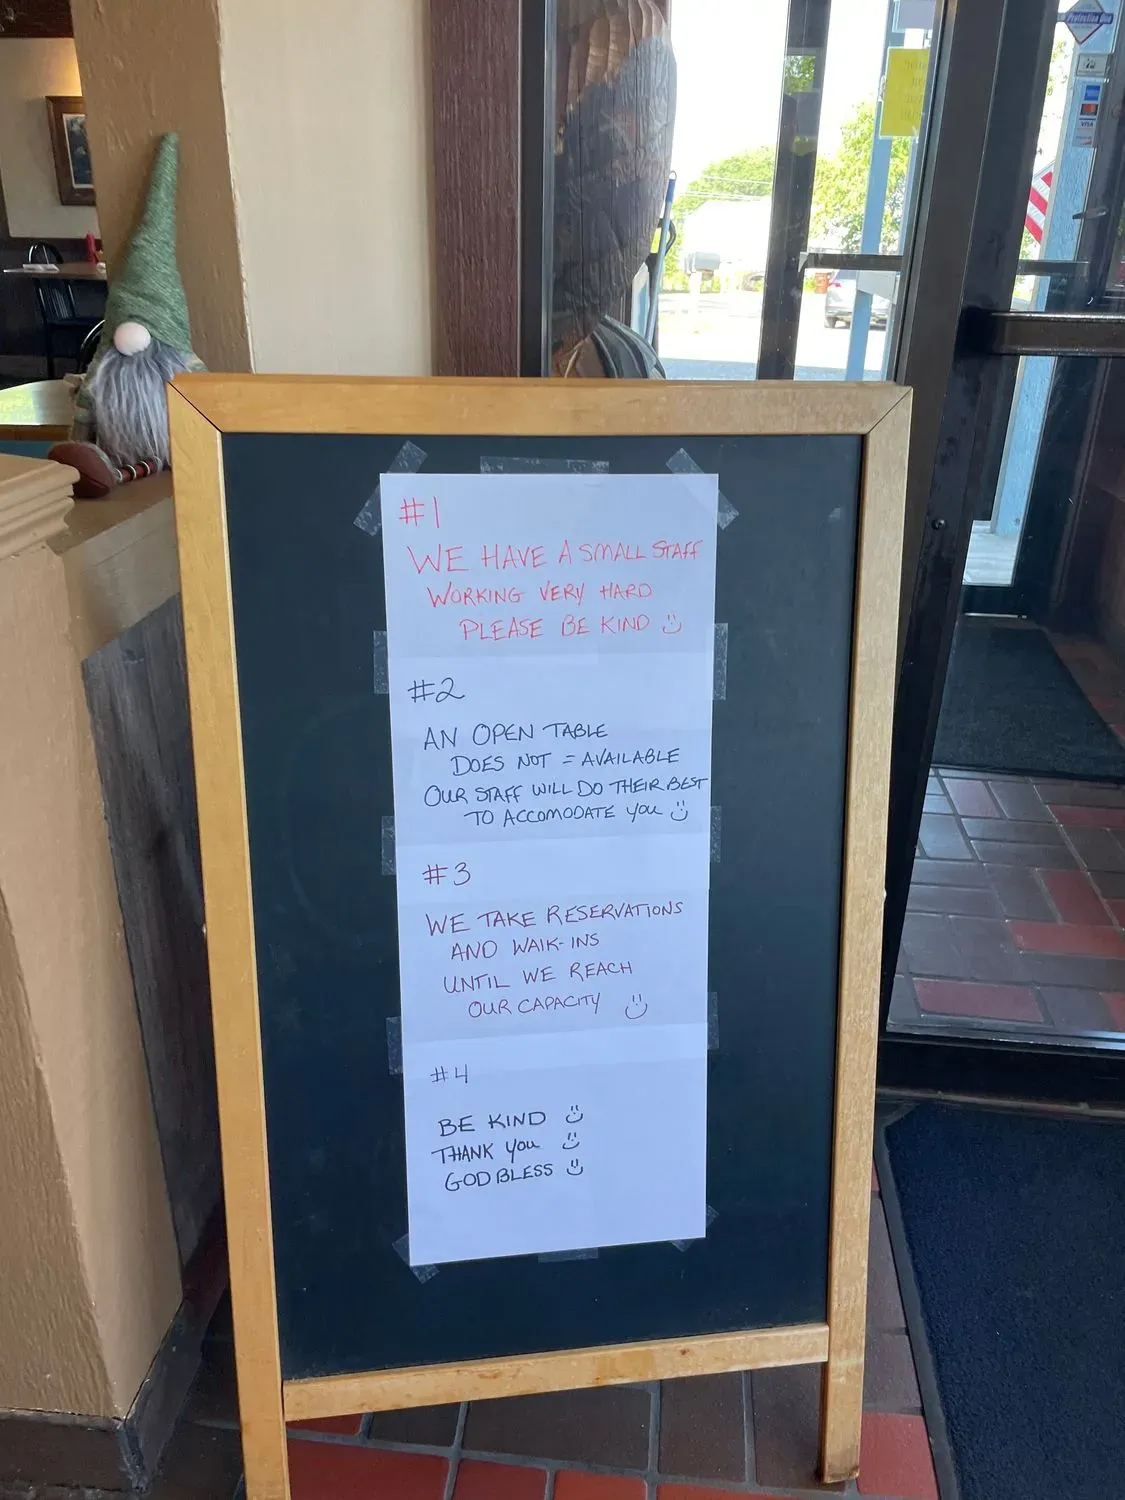 #1
WE HAVE A SMALL STAFF
WORKING VERY HARD
PLEASE BE KIND
#2
AN OPEN TABLE
DOES NOT = AVAILABLE
OUR STAFF WILL DO THEIR BEST
TO ACCOMODATE YOU
#3
WE TAKE RESERVATIONS
AND WALK-INS
UNTIL WE REACH
OUR CAPACITY
#4
BE KIND
THANK YOU
GOD BLESS
VISA